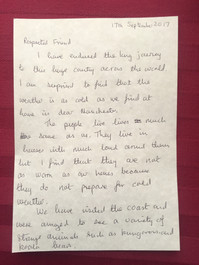 17th September 2017
Respected Friend
I have endured this long journey
to this huge country across the world
I am surprised to find that the
weather is as cold as we find at
home in dear Manchester.
The people live lives much
same as us. They live in
houses with much land around them
but I find that they are not
as warm as our homes because
they do not prepare for cold
weather.
We have visited the coast and
were amazed to see a variety of
strange animals such as